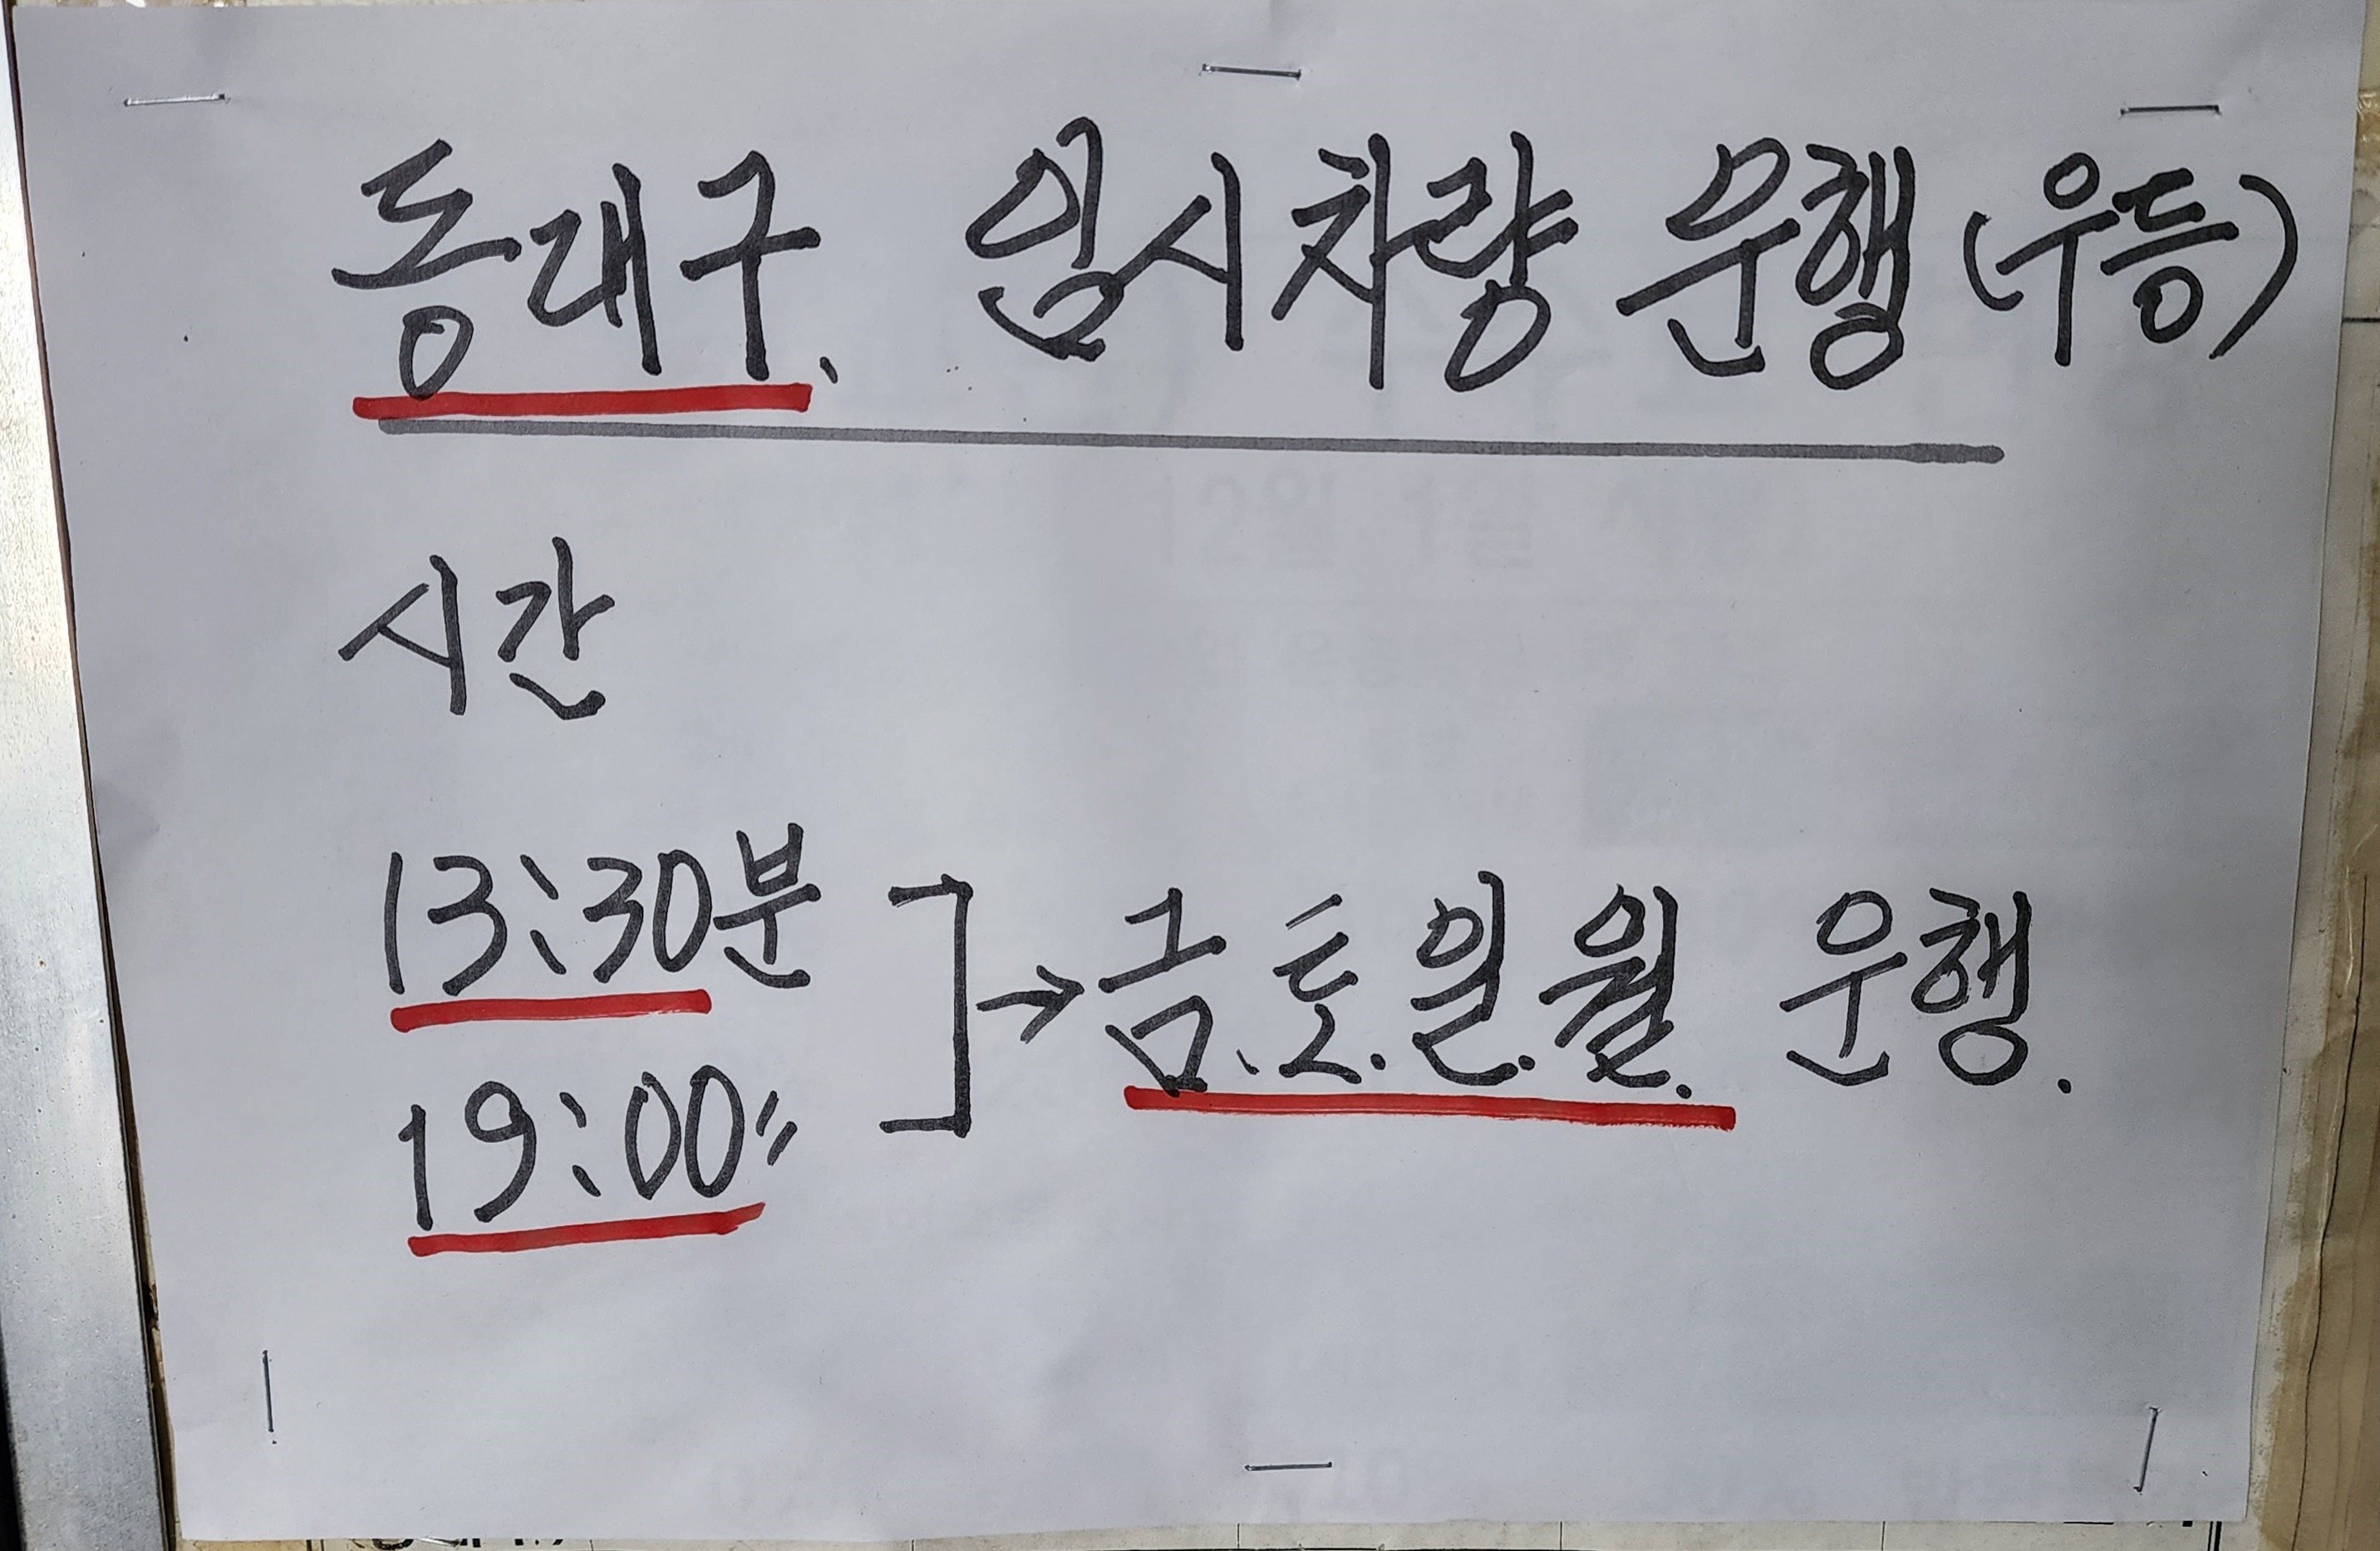 동대구. 임시차량 운행 (우등)
시간
13:30분
19:00〃
→ 금.토.일.월. 운행.